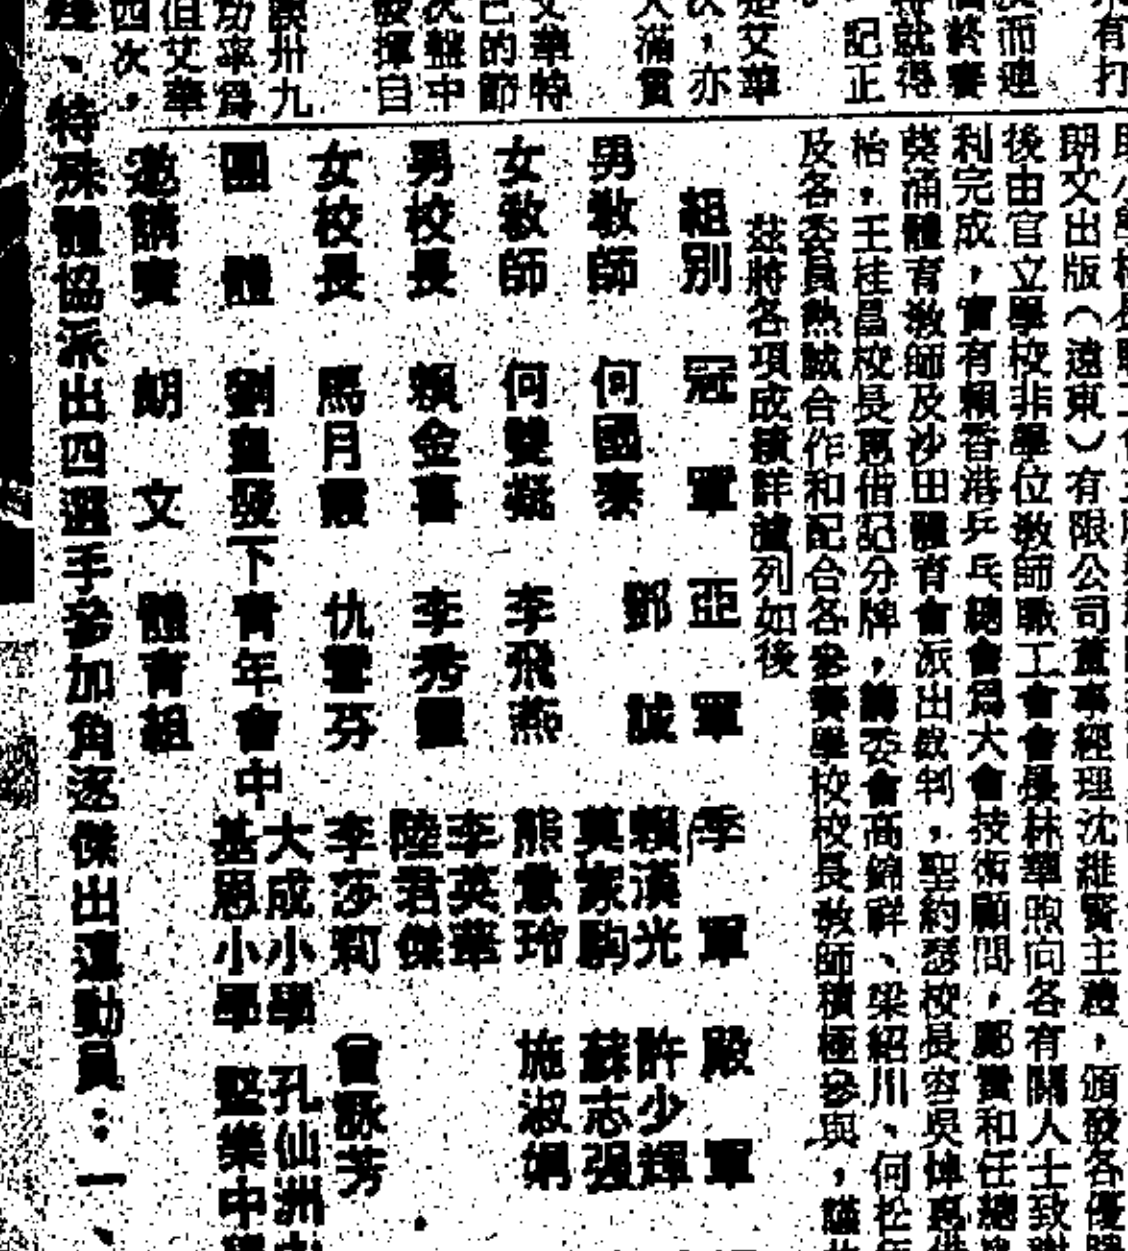 來有打
決而連
得就得
記正
是艾華
次，亦
大滿貫
艾華特
己的節
次盤中
發揮自
誤卅九
功率爲
但艾華
四次，
朗文出版（遠東）有限公司董事經理沈維賢主禮，頒發各優勝
後由官立學校非學位敎師職工會會長林華煦向各有關人士致謝
利完成，實有賴香港乒乓總會爲大會技術顧問，鄭贊和任總
葵涌體育敎師及沙田體育會派出裁判，聖約瑟校長容吳焯惠供
怡，王桂昌校長惠借記分牌，籌委會高錦祥、梁紹川、何松年
及各委員熱誠合作和配合各參賽學校校長敎師積極參與，謹此
茲將各項成績詳臚列如後
組別　冠軍　亞軍　季軍　殿軍
男敎師　何國泰　鄧誠　賴漢光　許少輝
莫家駒　蘇志强
女敎師　何雙擬　李飛燕　熊意玲　施淑娟
男校長　賴金喜　李秀靈　李英華
陸君傑
女校長　馬月霞　仇雪芬　李莎莉　曾詠芳
大成小學　孔仙洲
團體　劉皇發　下青年會中　基恩小學　堅樂中
邀請賽　朗文　體育組
、特殊體協派出四選手參加角逐傑出運動員：一、